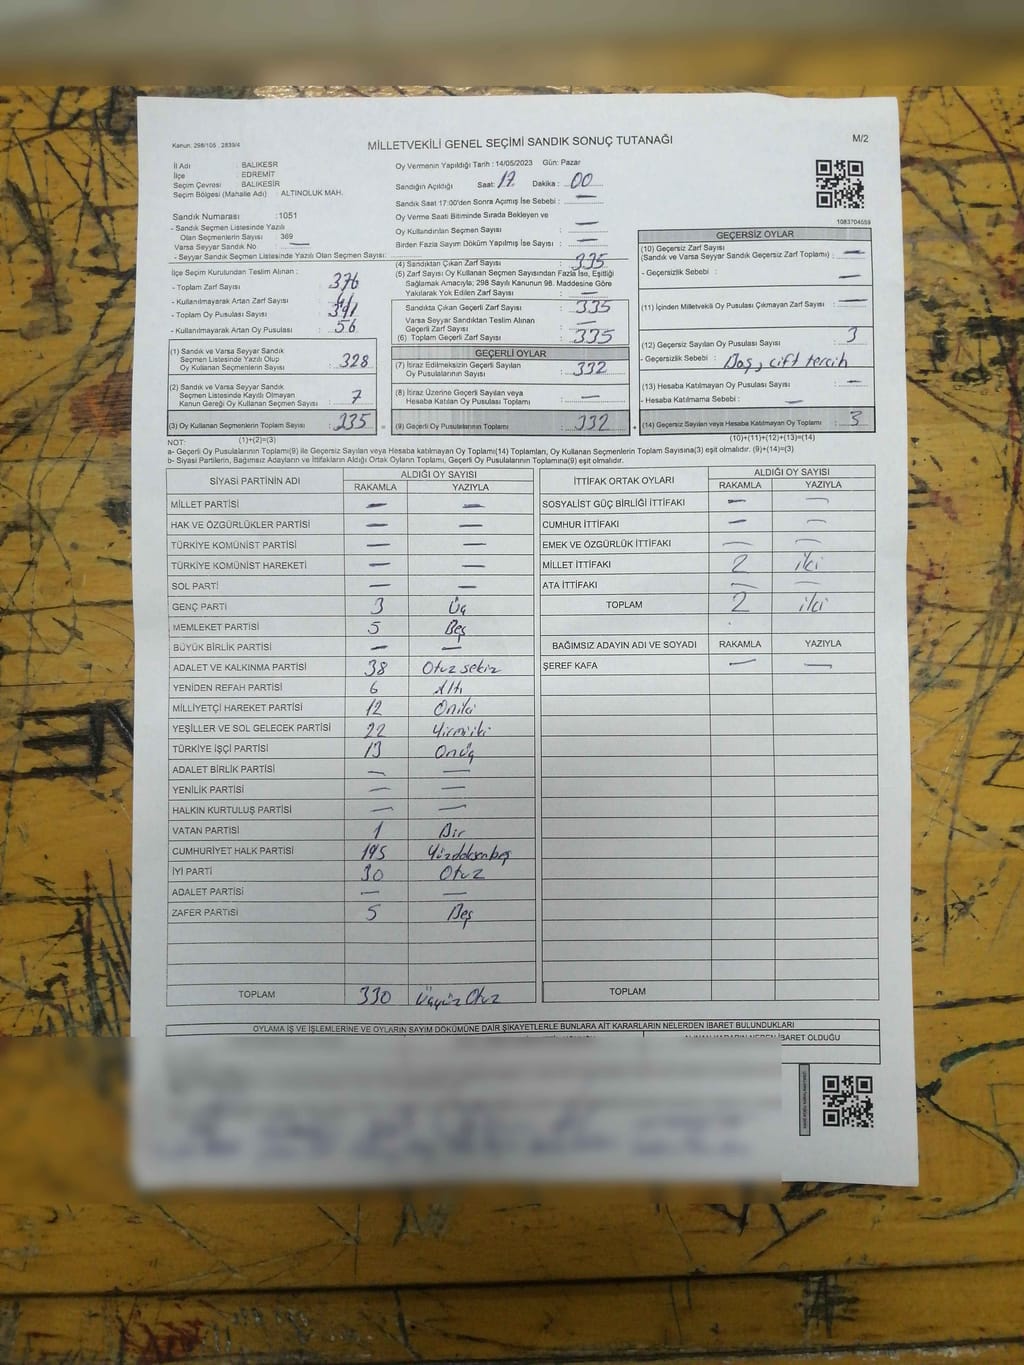 Kanun. 298/105 , 2839/4
MİLLETVEKİLİ GENEL SEÇİMİ SANDIK SONUÇ TUTANAĞI
M/2
İl Adı : BALIKESR
İlçe : EDREMİT
Seçim Çevresi : BALIKESİR
Seçim Bölgesi (Mahalle Adı) : ALTINOLUK MAH.
Sandık Numarası :1051
- Sandık Seçmen Listesinde Yazılı
Olan Seçmenlerin Sayısı : 369
Varsa Seyyar Sandık No —
- Seyyar Sandık Seçmen Listesinde Yazılı Olan Seçmen Sayısı:
İlçe Seçim Kurulundan Teslim Alınan :
- Toplam Zarf Sayısı : 376
- Kullanılmayarak Artan Zarf Sayısı : 41
- Toplam Oy Pusulası Sayısı : 391
- Kullanılmayarak Artan Oy Pusulası : 56
(1) Sandık ve Varsa Seyyar Sandık
Seçmen Listesinde Yazılı Olup
Oy Kullanan Seçmenlerin Sayısı : 328
(2) Sandık ve Varsa Seyyar Sandık
Seçmen Listesinde Kayıtlı Olmayan
Kanun Gereği Oy Kullanan Seçmen Sayısı : 7
(3) Oy Kullanan Seçmenlerin Toplam Sayısı : 335
Oy Vermenin Yapıldığı Tarih : 14/05/2023 Gün: Pazar
Sandığın Açıldığı Saat: 17 Dakika : 00
Sandık Saat 17:00'den Sonra Açımış İse Sebebi : —
Oy Verme Saati Bitiminde Sırada Bekleyen ve
Oy Kullandırılan Seçmen Sayısı : —
Birden Fazla Sayım Döküm Yapılmış İse Sayısı : —
(4) Sandıktan Çıkan Zarf Sayısı : 335
(5) Zarf Sayısı Oy Kullanan Seçmen Sayısından Fazla İse, Eşitliği
Sağlamak Amacıyla; 298 Sayılı Kanunun 98. Maddesine Göre
Yakılarak Yok Edilen Zarf Sayısı : —
Sandıkta Çıkan Geçerli Zarf Sayısı : 335
Varsa Seyyar Sandıktan Teslim Alınan
Geçerli Zarf Sayısı : —
(6) Toplam Geçerli Zarf Sayısı : 335
GEÇERLİ OYLAR
(7) İtiraz Edilmeksizin Geçerli Sayılan
Oy Pusulalarının Sayısı : 332
(8) İtiraz Üzerine Geçerli Sayılan veya
Hesaba Katılan Oy Pusulası Toplamı : —
(9) Geçerli Oy Pusulalarının Toplamı : 332
1083704559
GEÇERSİZ OYLAR
(10) Geçersiz Zarf Sayısı
(Sandık ve Varsa Seyyar Sandık Geçersiz Zarf Toplamı) : —
- Geçersizlik Sebebi : —
(11) İçinden Milletvekili Oy Pusulası Çıkmayan Zarf Sayısı : —
(12) Geçersiz Sayılan Oy Pusulası Sayısı : 3
- Geçersizlik Sebebi : Boş, çift tercih
(13) Hesaba Katılmayan Oy Pusulası Sayısı : —
- Hesaba Katılmama Sebebi : —
(14) Geçersiz Sayılan veya Hesaba Katılmayan Oy Toplamı : 3
NOT: (1)+(2)=(3) (10)+(11)+(12)+(13)=(14)
a- Geçerli Oy Pusulalarının Toplamı(9) ile Geçersiz Sayılan veya Hesaba katılmayan Oy Toplamı(14) Toplamları, Oy Kullanan Seçmenlerin Toplam Sayısına(3) eşit olmalıdır. (9)+(14)=(3)
b- Siyasi Partilerin, Bağımsız Adayların ve İttifakların Aldığı Ortak Oyların Toplamı, Geçerli Oy Pusulalarının Toplamına(9) eşit olmalıdır.
SİYASİ PARTİNİN ADI ALDIĞI OY SAYISI
RAKAMLA YAZIYLA
MİLLET PARTİSİ — —
HAK VE ÖZGÜRLÜKLER PARTİSİ — —
TÜRKİYE KOMÜNİST PARTİSİ — —
TÜRKİYE KOMÜNİST HAREKETİ — —
SOL PARTİ — —
GENÇ PARTİ 3 Üç
MEMLEKET PARTİSİ 5 Beş
BÜYÜK BİRLİK PARTİSİ — —
ADALET VE KALKINMA PARTİSİ 38 Otuz sekiz
YENİDEN REFAH PARTİSİ 6 Altı
MİLLİYETÇİ HAREKET PARTİSİ 12 Oniki
YEŞİLLER VE SOL GELECEK PARTİSİ 22 Yirmiiki
TÜRKİYE İŞÇİ PARTİSİ 13 Onüç
ADALET BİRLİK PARTİSİ — —
YENİLİK PARTİSİ — —
HALKIN KURTULUŞ PARTİSİ — —
VATAN PARTİSİ 1 Bir
CUMHURİYET HALK PARTİSİ 195 Yüzdoksanbeş
İYİ PARTİ 30 Otuz
ADALET PARTİSİ — —
ZAFER PARTİSİ 5 Beş
TOPLAM 330 Üçyüz Otuz
İTTİFAK ORTAK OYLARI ALDIĞI OY SAYISI
RAKAMLA YAZIYLA
SOSYALİST GÜÇ BİRLİĞİ İTTİFAKI — —
CUMHUR İTTİFAKI — —
EMEK VE ÖZGÜRLÜK İTTİFAKI — —
MİLLET İTTİFAKI 2 iki
ATA İTTİFAKI — —
TOPLAM 2 iki
BAĞIMSIZ ADAYIN ADI VE SOYADI RAKAMLA YAZIYLA
ŞEREF KAFA — —
TOPLAM
OYLAMA İŞ VE İŞLEMLERİNE VE OYLARIN SAYIM DÖKÜMÜNE DAİR ŞİKAYETLERLE BUNLARA AİT KARARLARIN NELERDEN İBARET BULUNDUKLARI
İBARET OLDUĞU